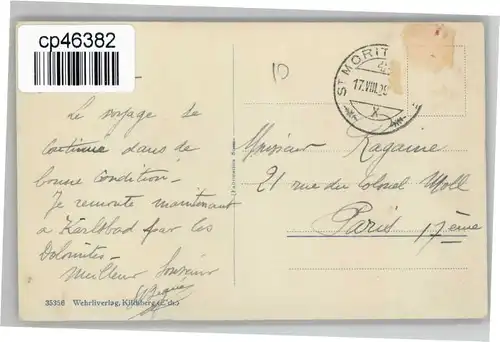 cp46382
ST. MORITZ
17.VIII.29
X
10
Le voyage se
continue dans de
bonne condition -
Je remonte maintenant
à Karlsbad par les
Dolomites -
Meilleur Souvenir
Monsieur Ragaine
21 rue du Colonel Moll
Paris 17ème
35356 Wehrliverlag, Kilchberg (Zch.)